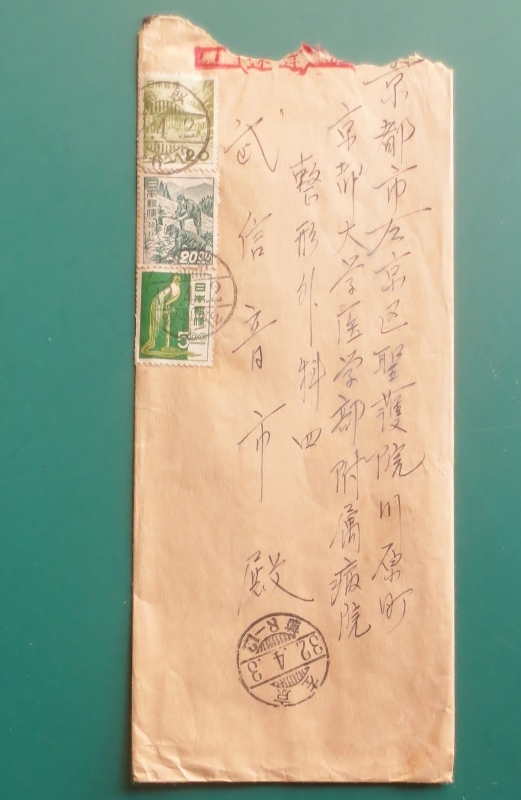 京都市左京区聖護院川原町
京都大学医学部附属病院
整形外科四
武信音市殿
日本郵便
20
日本郵便
20.00
日本郵便
5.00
32.4.3